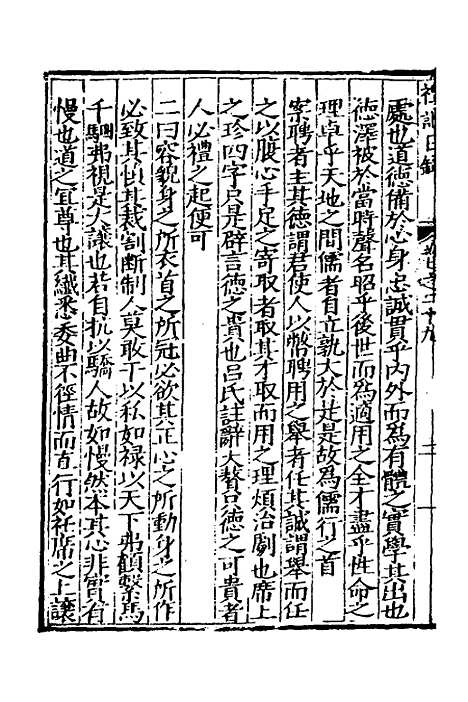 禮記日錄 卷之二十九 三
處也道德備於心身忠誠貫乎內外而爲有體之實學其出也
德澤被於當時聲名昭乎後世而爲適用之全才盡乎性命之
理卓乎天地之間儒者自立孰大於是故爲儒行之首
宗聘者主其德謂君使人以幣聘用之舉者任其誠謂舉而任
之以腹心手足之寄取者取其才取而用之理煩治劇也席上
之珍四字只是辟言德之貴也呂氏註辭大贅只德之可貴者
人必禮之起便可
二曰容貌身之所衣首之所冠必欲其正心之所動身之所作
必致其慎其裁割斷制人莫敢干以私如祿以天下弗顧繫馬
千駟弗視是大讓也若自抗以驕人故如慢然本其心非實有
慢也道之宜尊也其纖悉委曲不徑情而直行如衽席之上讓